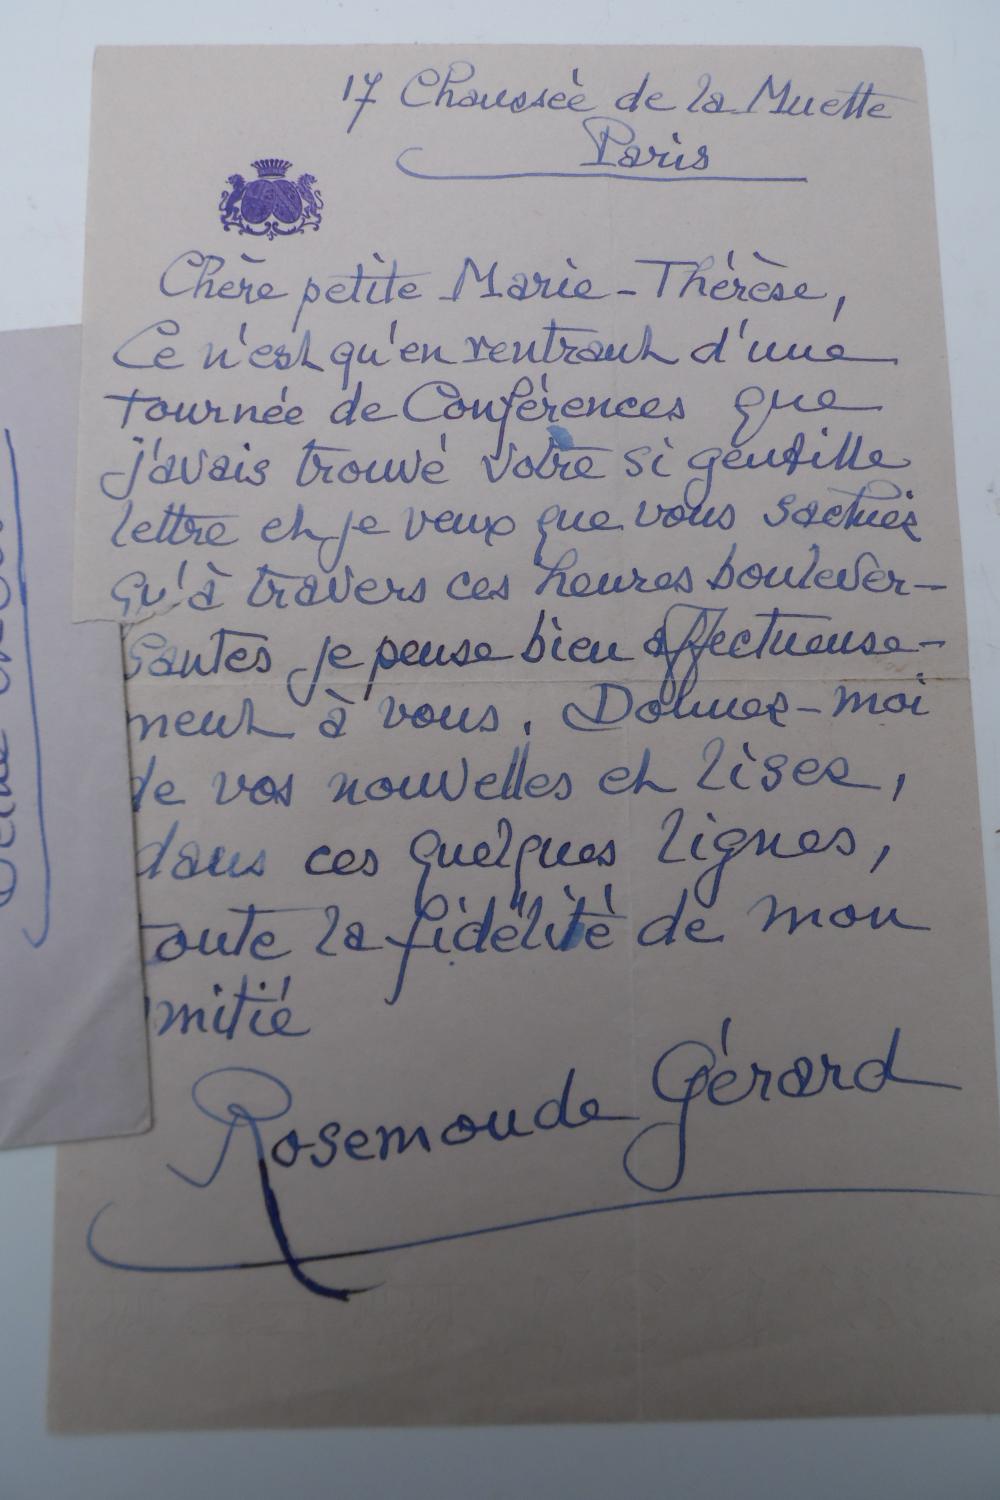 17 Chaussée de la Muette
Paris
Chère petite Marie-Thérèse,
Ce n'est qu'en rentrant d'une
tournée de Conférences que
j'avais trouvé votre si gentille
lettre et je veux que vous sachiez
qu'à travers ces heures boulever-
santes je pense bien affectueuse-
ment à vous. Donnez-moi
de vos nouvelles et lisez,
dans ces quelques lignes,
toute la fidélité de mon
amitié
Rosemonde Gérard